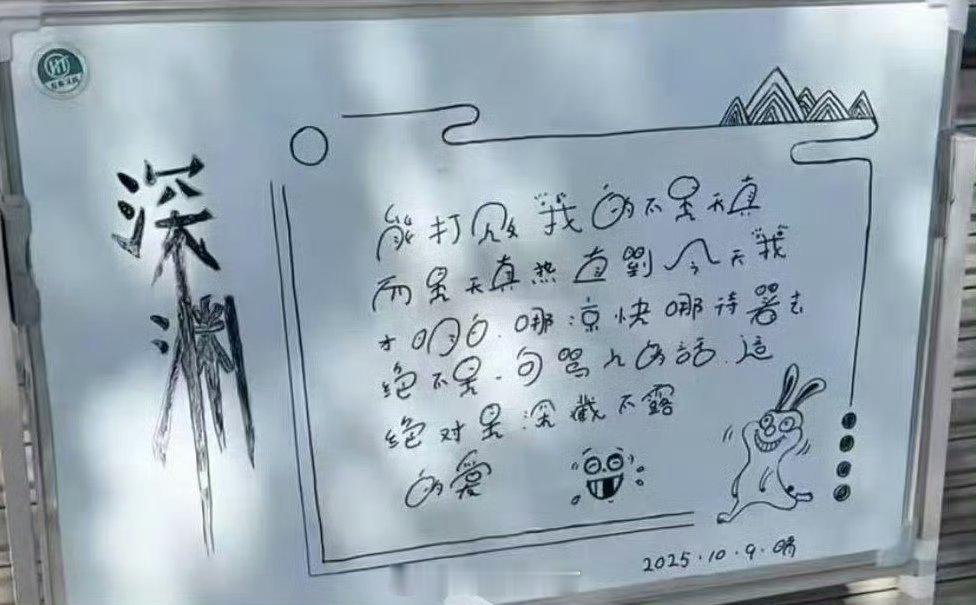 深渊
能打败我的不是天真
而是天真热直到今天我
才明白.哪凉快哪待著去
绝不是一句骂人的話.這
绝对是深藏不露
的愛
2025.10.9.晴